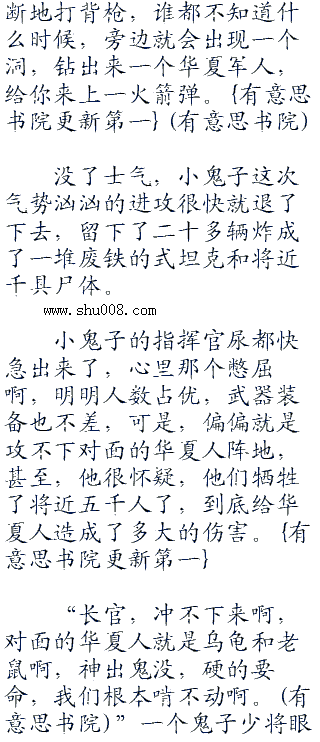 断地打背枪，谁都不知道什
么时候，旁边就会出现一个
洞，钻出来一个华夏军人，
给你来上一火箭弹。{有意思
书院更新第一}(有意思书院)
没了士气，小鬼子这次
气势汹汹的进攻很快就退了
下去，留下了二十多辆炸成
了一堆废铁的式坦克和将近
千具尸体。
www.shu008.com
小鬼子的指挥官尿都快
急出来了，心里那个憋屈
啊，明明人数占优，武器装
备也不差，可是，偏偏就是
攻不下对面的华夏人阵地，
甚至，他很怀疑，他们牺牲
了将近五千人了，到底给华
夏人造成了多大的伤害。{有
意思书院更新第一}
“长官，冲不下来啊，
对面的华夏人就是乌龟和老
鼠啊，神出鬼没，硬的要
命，我们根本啃不动啊。(有
意思书院)”一个鬼子少将眼